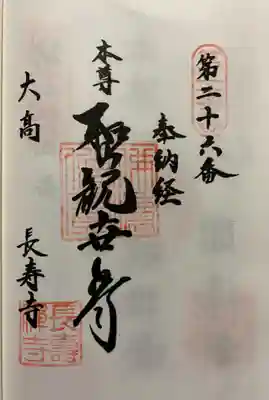 第二十六番
奉納経
本尊
聖観世音
大高 長寿寺
長寿禅寺